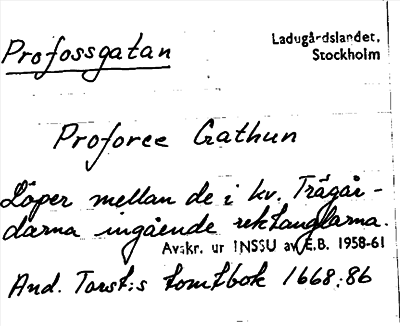 Profossgatan
Ladugårdslandet,
Stockholm
Proforce Gathun
Löper mellan de i kv. Trägår-
darna ingående rektanglarna.
Avskr. ur INSSU av E.B. 1958-61
And. Torst:s tomtbok 1668:86